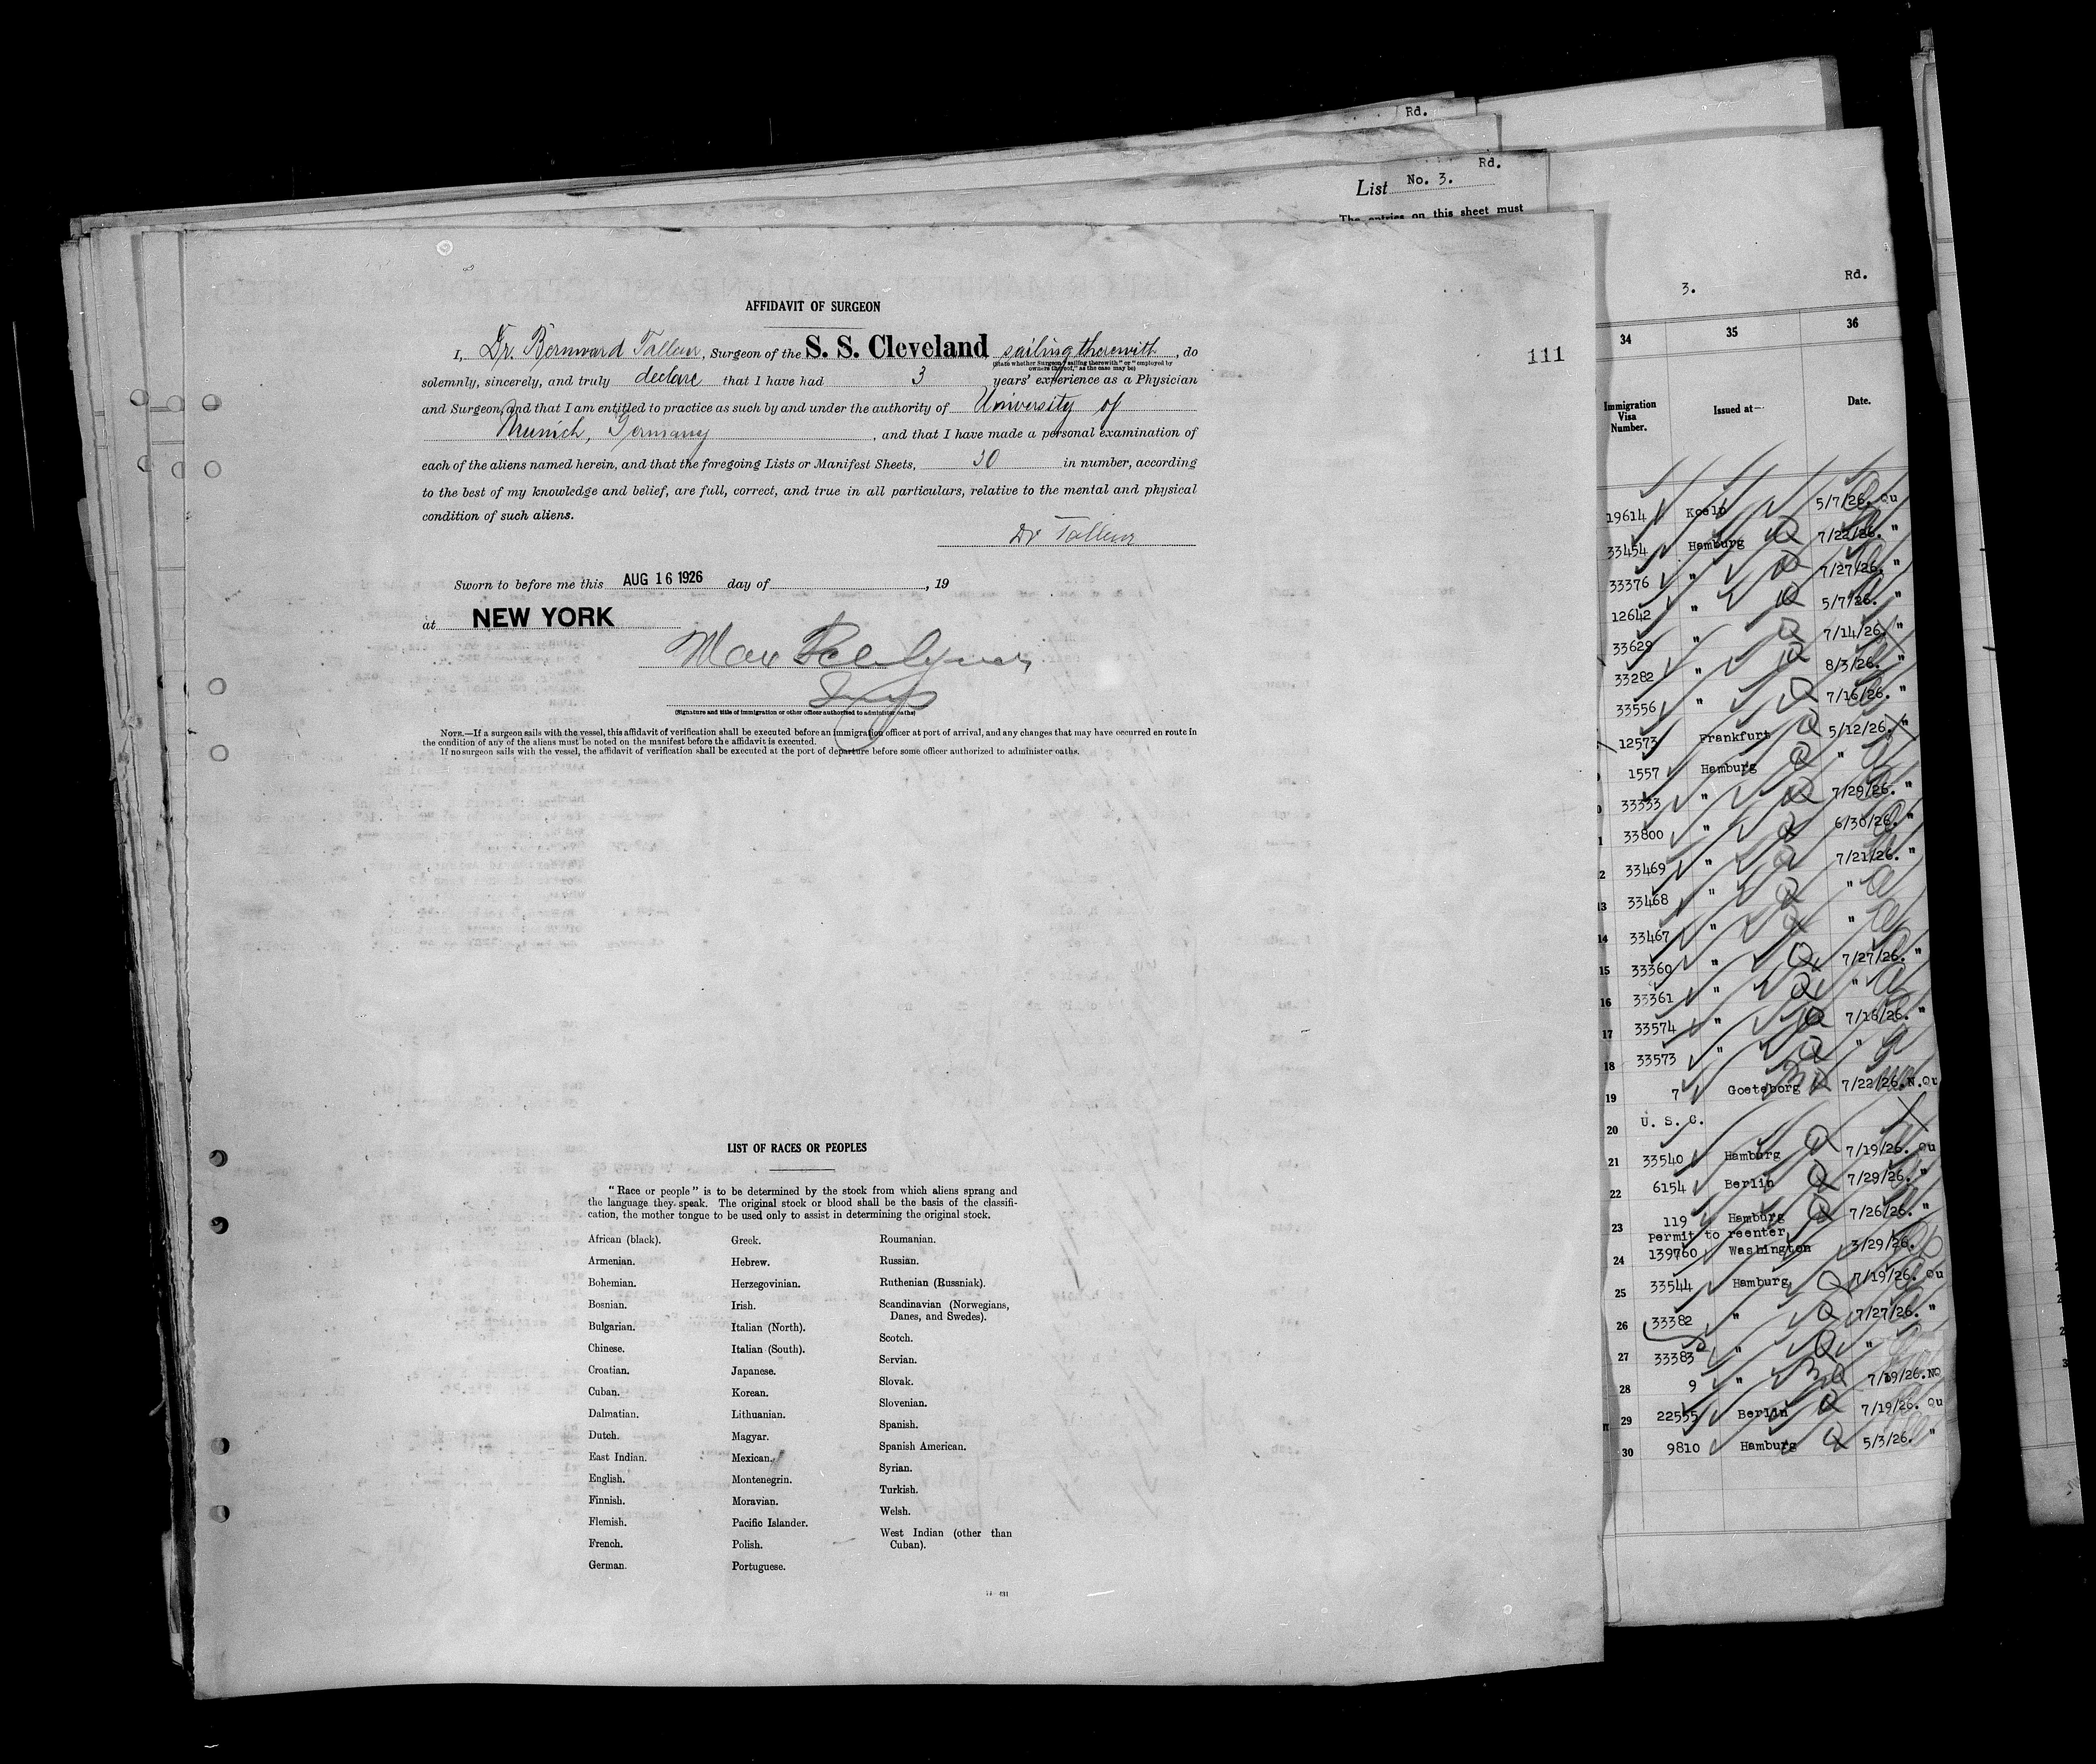 Rd.
Rd.
List No. 3.
The entries on this sheet must
3. Rd.
AFFIDAVIT OF SURGEON
I, Dr. Bernward Tallen, Surgeon of the S. S. Cleveland sailing therewith, do
(State whether Surgeon "sailing therewith" or "employed by
owners thereof," as the case may be)
solemnly, sincerely, and truly declare that I have had 3 years' experience as a Physician
and Surgeon, and that I am entitled to practice as such by and under the authority of University of
Munich, Germany, and that I have made a personal examination of
each of the aliens named herein, and that the foregoing Lists or Manifest Sheets, 30 in number, according
to the best of my knowledge and belief, are full, correct, and true in all particulars, relative to the mental and physical
condition of such aliens.
Dr
Sworn to before me this AUG 16 1926 day of , 19
at NEW YORK
Max
(Signature and title of immigration or other officer authorized to administer oaths)
NOTE.—If a surgeon sails with the vessel, this affidavit of verification shall be executed before an immigration officer at port of arrival, and any changes that may have occurred en route in
the condition of any of the aliens must be noted on the manifest before the affidavit is executed.
If no surgeon sails with the vessel, the affidavit of verification shall be executed at the port of departure before some officer authorized to administer oaths.
LIST OF RACES OR PEOPLES
"Race or people" is to be determined by the stock from which aliens sprang and
the language they speak. The original stock or blood shall be the basis of the classifi-
cation, the mother tongue to be used only to assist in determining the original stock.
African (black).
Armenian.
Bohemian.
Bosnian.
Bulgarian.
Chinese.
Croatian.
Cuban.
Dalmatian.
Dutch.
East Indian.
English.
Finnish.
Flemish.
French.
German.
Greek.
Hebrew.
Herzegovinian.
Irish.
Italian (North).
Italian (South).
Japanese.
Korean.
Lithuanian.
Magyar.
Mexican.
Montenegrin.
Moravian.
Pacific Islander.
Polish.
Portuguese.
Roumanian.
Russian.
Ruthenian (Russniak).
Scandinavian (Norwegians,
Danes, and Swedes).
Scotch.
Servian.
Slovak.
Slovenian.
Spanish.
Spanish American.
Syrian.
Turkish.
Welsh.
West Indian (other than
Cuban).
111
34 35 36
Immigration
Visa
Number.
Issued at—
Date.
19614 Koeln 5/7/26. Qu
33454 Hamburg Q 7/22/26. "
33376 " Q 7/27/26. "
12642 " Q 5/7/26. "
33629 " Q 7/14/26. "
33282 " Q 8/3/26. "
33556 " Q 7/16/26. "
12573 Frankfurt Q 5/12/26. "
1557 Hamburg Q "
33333 " Q 7/29/26. "
33800 " Q 6/30/26. "
33469 " Q 7/21/26. "
13 33468 " Q "
14 33467 " Q "
15 33360 " Q 7/27/26. "
16 33361 " Q "
17 33574 " Q 7/16/26. "
18 33573 " Q "
19 7 Goeteborg 7/22/26.N.Qu
20 U. S. C.
21 33540 Hamburg Q 7/19/26. Qu
22 6154 Berlin Q 7/29/26. "
23 119 Hamburg Q 7/26/26. "
Permit to reenter,
24 139760 Washington 3/29/26.
25 33544 Hamburg Q 7/19/26. Qu
26 33382 " Q 7/27/26. "
27 33383 " Q "
28 9 " 7/19/26.NQ
29 22555 Berlin Q 7/19/26. Qu
30 9810 Hamburg Q 5/3/26. "